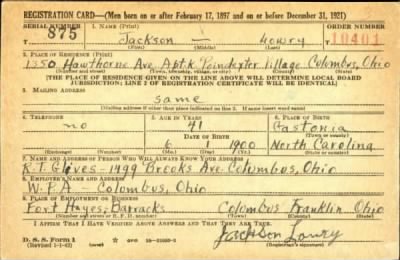 REGISTRATION CARD—(Men born on or after February 17, 1897 and on or before December 31, 1921)
SERIAL NUMBER 1. NAME (Print) ORDER NUMBER
875 Jackson — Lowry 10401
(First) (Middle) (Last)
2. PLACE OF RESIDENCE (Print)
1350 Hawthorne Ave Apt. K Poindexter Village Columbus, Ohio
(Number and street) (Town, township, village, or city) (County) (State)
[THE PLACE OF RESIDENCE GIVEN ON THE LINE ABOVE WILL DETERMINE LOCAL BOARD
JURISDICTION; LINE 2 OF REGISTRATION CERTIFICATE WILL BE IDENTICAL]
3. MAILING ADDRESS
same
(Mailing address if other than place indicated on line 2. If same insert word same)
4. TELEPHONE 5. AGE IN YEARS 6. PLACE OF BIRTH
no 41 Gastonia
DATE OF BIRTH (Town or county)
6 1 1900 North Carolina
(Exchange) (Number) (Mo.) (Day) (Yr.) (State or country)
7. NAME AND ADDRESS OF PERSON WHO WILL ALWAYS KNOW YOUR ADDRESS
R.T. Gloves - 1499 Brooks Ave. Columbus, Ohio
8. EMPLOYER'S NAME AND ADDRESS
W.P.A. — Colombus, Ohio
9. PLACE OF EMPLOYMENT OR BUSINESS
Fort Hayes-Barracks Colombus Franklin Ohio
(Number and street or R. F. D. number) (Town) (County) (State)
I AFFIRM THAT I HAVE VERIFIED ABOVE ANSWERS AND THAT THEY ARE TRUE.
D. S. S. Form 1
(Revised 1-1-42) Jackson Lowry
(Registrant's signature)